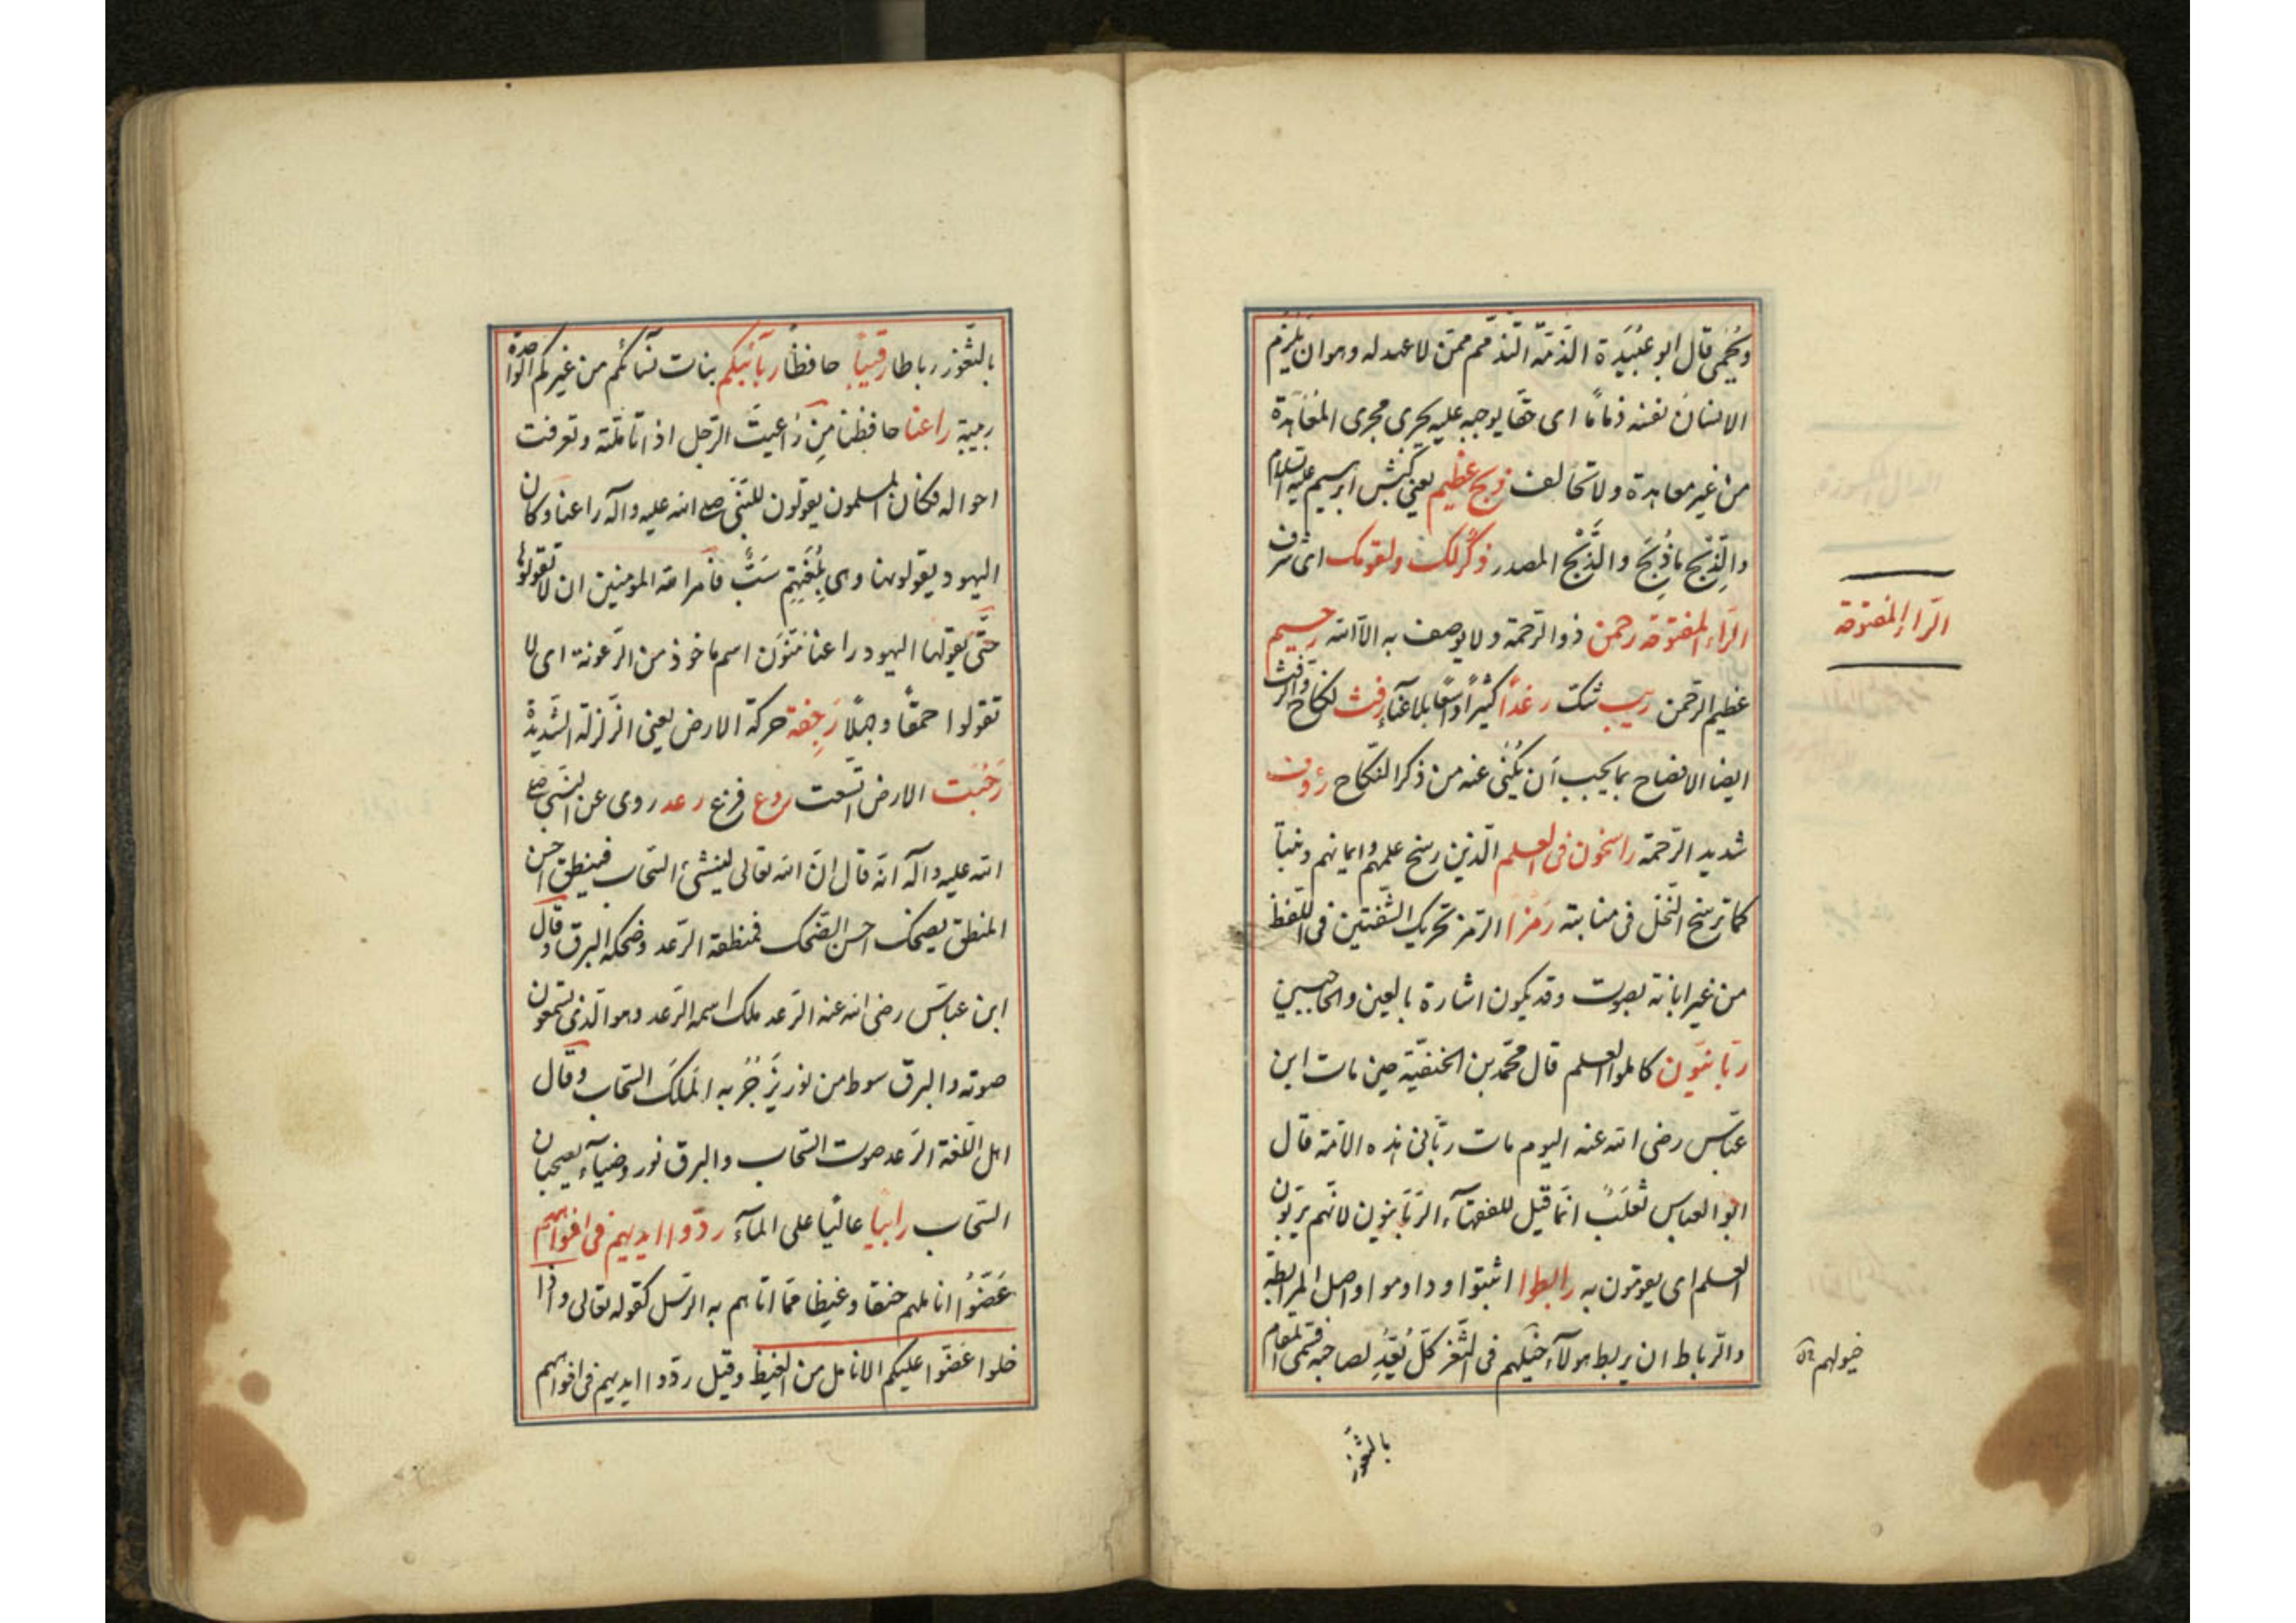 ويحمى قال ابو عبيدة الذمة التذمم ممن لا عهد له وهو ان يلزم
الانسان نفسه ذماما اى حقا يوجبه عليه يجرى مجرى المعاهدة
من غير معاهدة ولا تحالف ذبح عظيم يعنى كبش ابرهيم عليه السلام
والذِّبح ما ذُبِحَ والذَّبْح المصدر ذكر لك ولقومك اى شرف
الراء المفتوحة رحمن ذو الرحمة ولا يوصف به الا الله رحيم
عظيم الرحمن ريب شك رغدا كثيرا واسعا بلا عناء رفث نكاح والرفث
ايضا الافضاح بما يجب ان يُكنى عنه من ذكر النكاح رؤوف
شديد الرحمة راسخون فى العلم الذين رسخ علمهم وايمانهم وثبتا
كما ترسخ النخل فى منابته رمزا الرمز تحريك الشفتين فى اللفظ
من غير ابانة بصوت وقد يكون اشارة بالعين والحاجبين
ربانيون كاملوا العلم قال محمد بن الحنفية حين مات ابن
عباس رضى الله عنه اليوم مات ربانى هذه الامة قال
ابو العباس ثعلب انما قيل للفقهاء الربانيون لانهم يربون
العلم اى يقومون به رابطوا اثبتوا وداوموا واصل المرابطة
والرباط ان يربط هولاء خيلهم فى الثغر كل يُعِدُّ لصاحبه فسمى المقام
الراء المفتوحة
خيولهم
بالثغور
بالثغور رباطا رقيبا حافظا ربائبكم بنات نسائكم من غيركم الواحدة
ربيبة راعنا حافظنا مِن رَاعيتَ الرجل اذا تاملته وتعرفت
احواله فكان المسلمون يقولون للنبى صلى الله عليه وآله راعنا وكان
اليهود يقولونها وهى بلغتهم سبّ فامر الله المومنين ان لا تقولوها
حتى يقولها اليهود راعنا منون اسم ماخوذ من الرعونة اى لا
تقولوا حمقا وجهلا رَجِفة حركة الارض يعنى الزلزلة الشديدة
رَحُبَت الارض اتسعت روع فزع رعد روى عن النبى صلى
الله عليه وآله انه قال ان الله تعالى لينشئ السحاب فينطق احسن
المنطق يضحك احسن الضحك فمنطقه الرعد وضحكه البرق وقال
ابن عباس رضى الله عنه الرعد ملك اسمه الرعد وهو الذى تسمعون
صوته والبرق سوط من نور يَزْجُرُ به الملَكَ السحاب وقال
اهل اللغة الرعد صوت السحاب والبرق نور وضياء يصحبان
السحاب رابيا عاليا على الماء ردوا ايديهم فى افواههم
عَضُّوا اناملهم حنقا وغيظا مما اتاهم به الرسل كقوله تعالى واذا
خلوا عضوا عليكم الانامل من الغيظ وقيل ردوا ايديهم فى افواههم